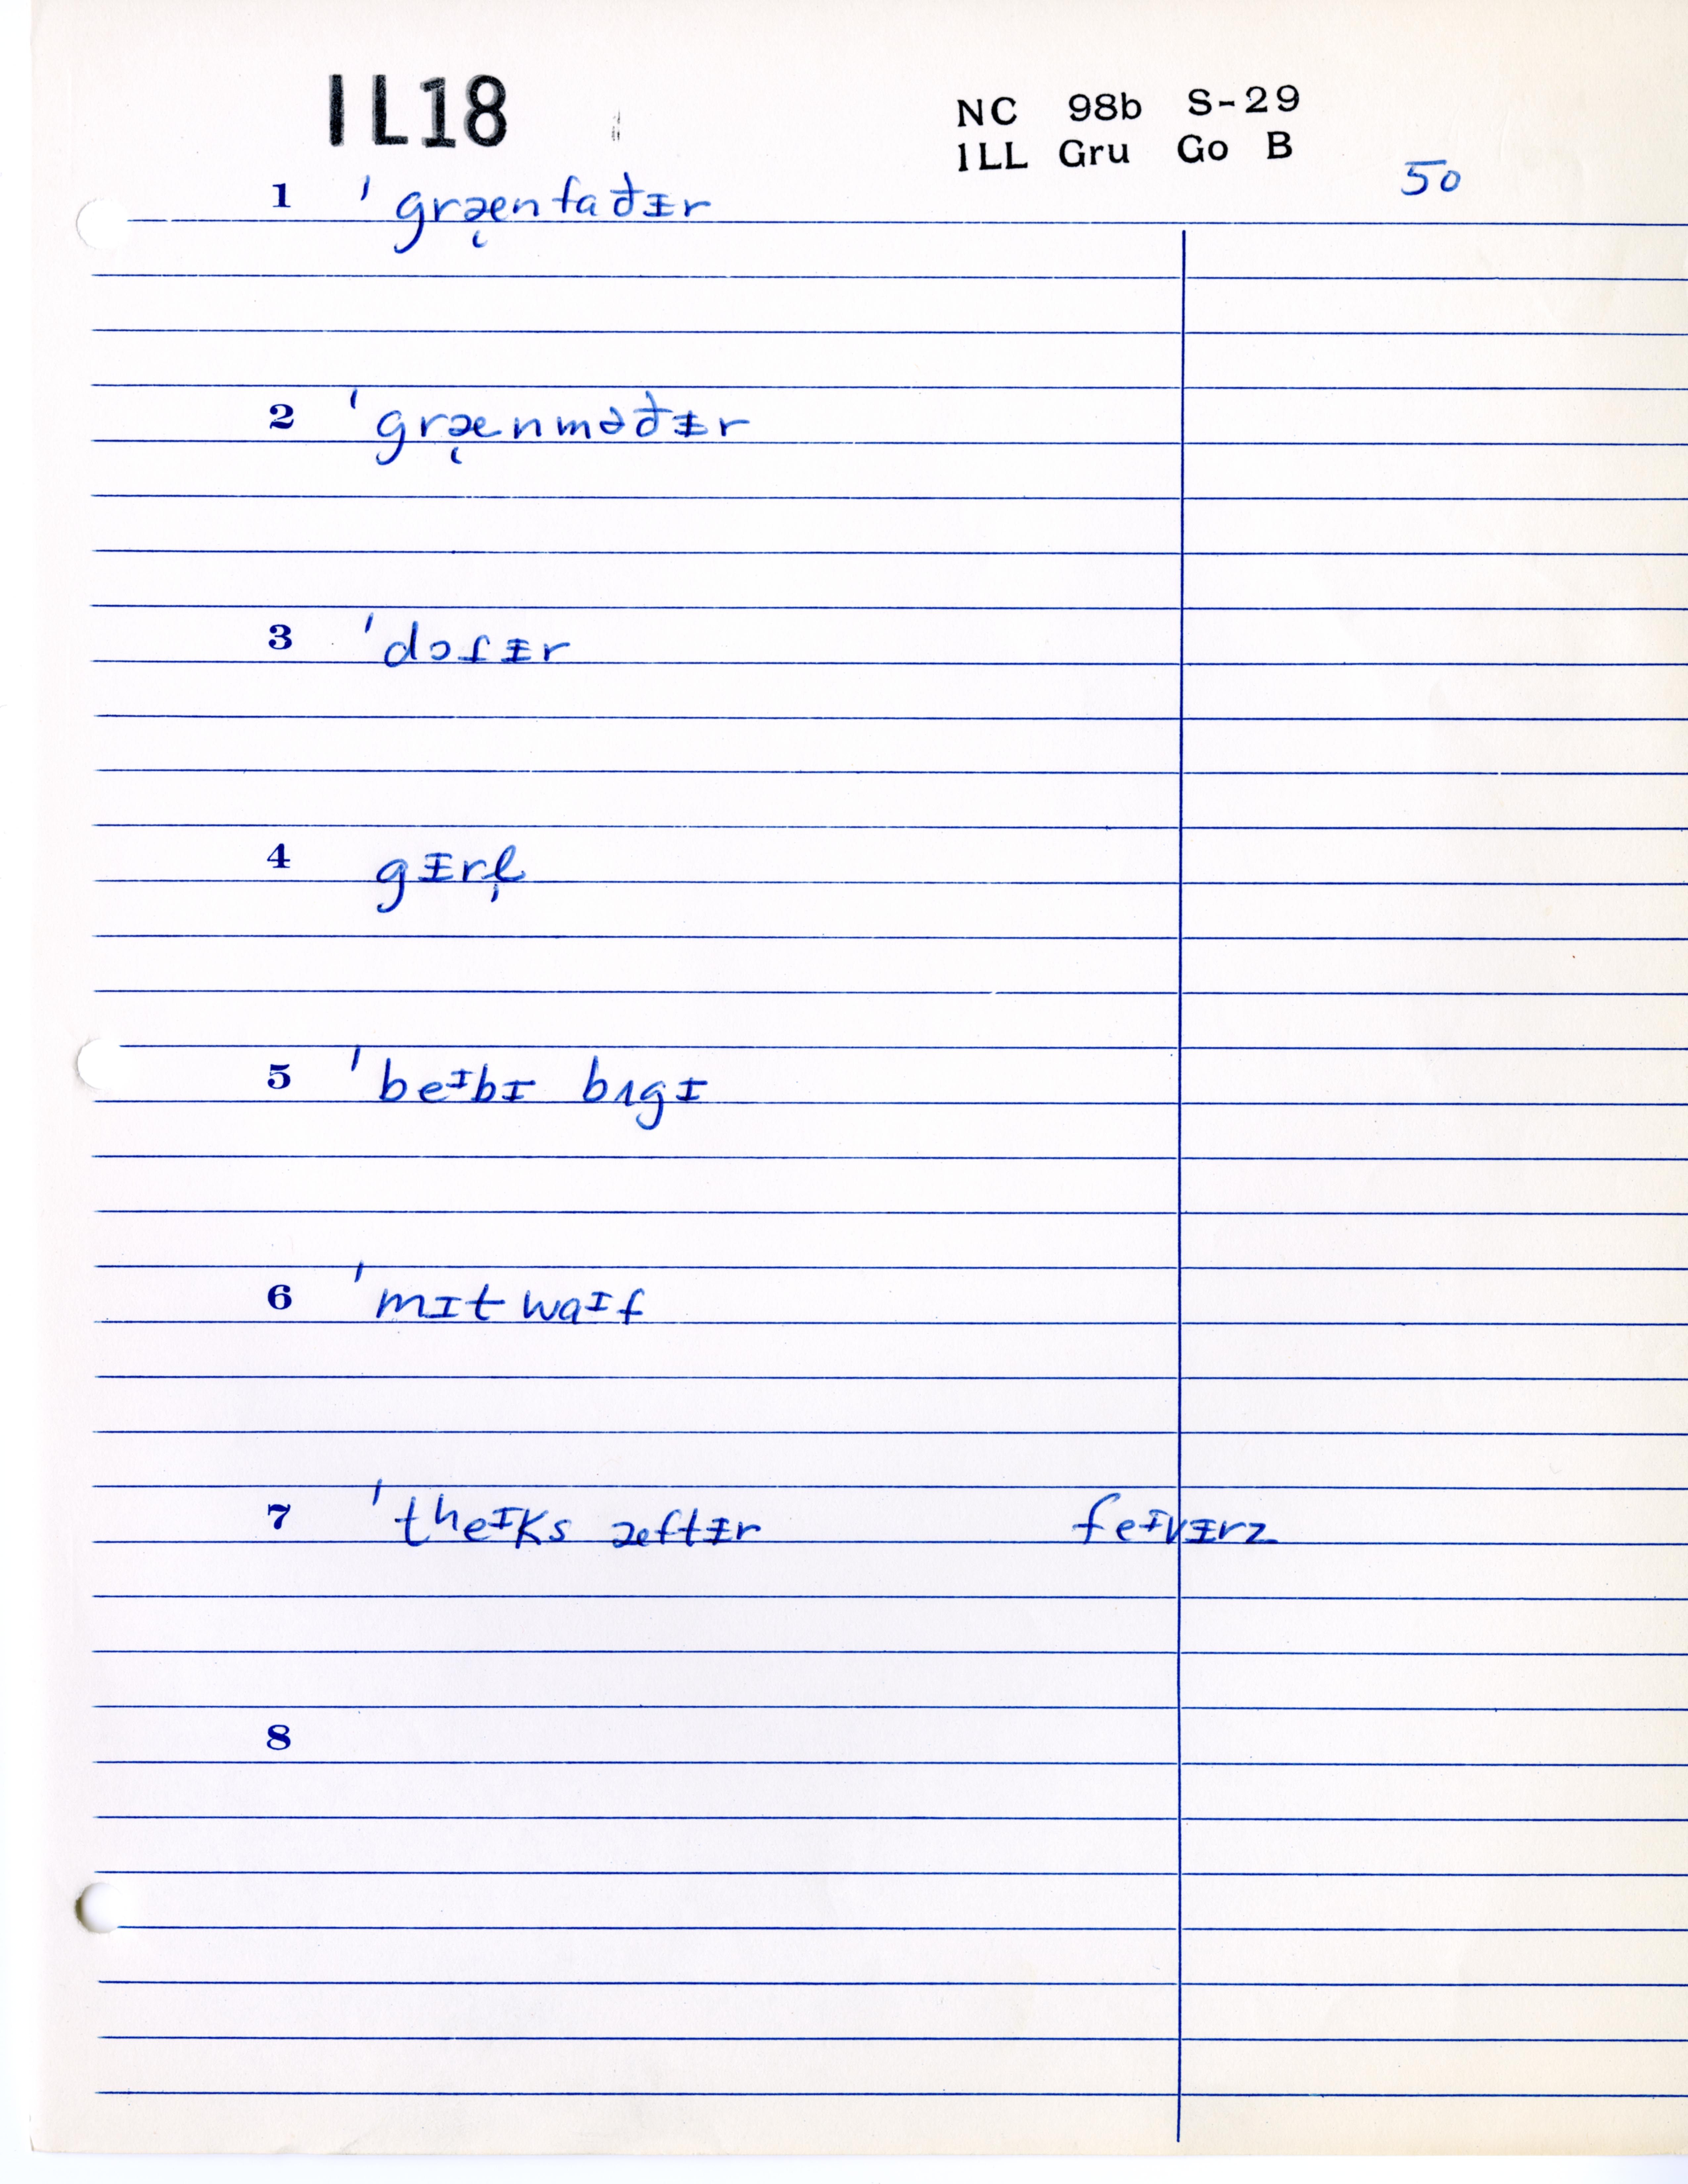 IL18
NC 98b S-29
ILL Gru Go B
50
1 ˈgræ̨nfaðᵻr
2 ˈgræ̨nməðᵻr
3 ˈdɔɾᵻr
4 gᵻrl̩
5 ˈbeᶦbɪ bʌgɪ
6 ˈmɪtwaᶦf
7 ˈtʰeᶦks æftᵻr feᶦvᵻrz
8